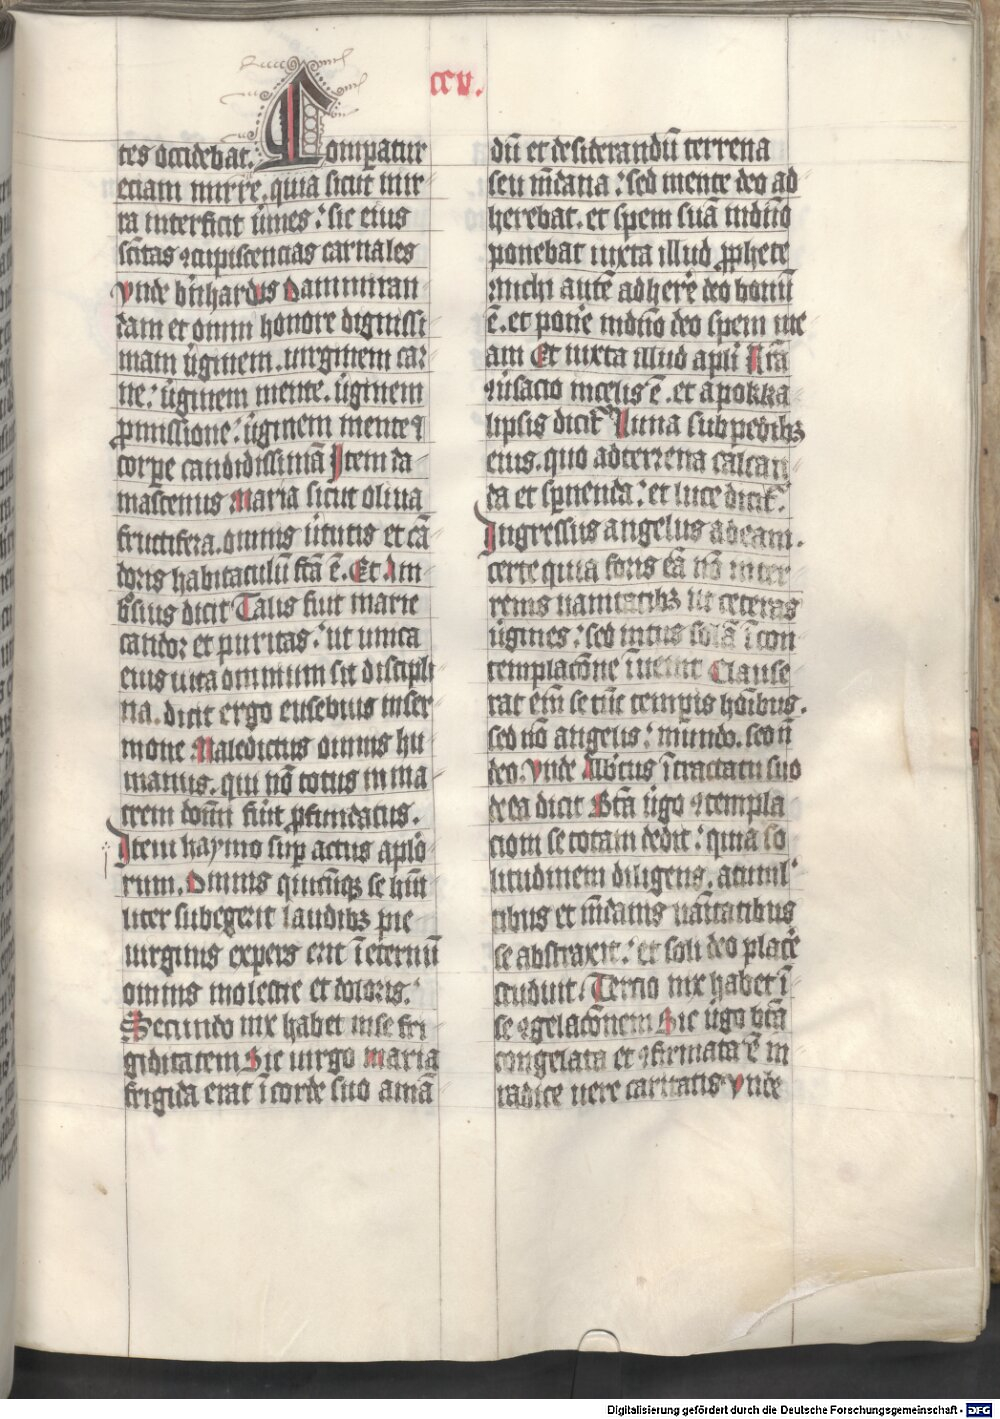 ccv.
tes occidebat. Compatur
eciam mirre. quia sicut mir
ra interficit v̄mes: sic eius
sc̄itas ꝯcupiscencias carnales
Vnde b̄nhardus Dam miran
dam et omni honore dignissi
mam v̄ginem. uirginem car
ne: v̄ginem mente. v̄ginem
ꝓmissione: v̄ginem mente ⁊
corpe candidissimā Item da
mascenus Maria sicut oliua
fructifera. omnis v̄tutis et cā
doris habitaculū fc̄a ē. Et Am
b̄sius dicit Talis fuit marie
candor et puritas: ut unica
eius uita omnium sit discipli
na. dicit ergo eusebius in ser
mone Maledictus omnis hu
manus. qui nō totus in ma
trem domī fūit ꝓfundatus.
Item haymo suꝑ actus aplo
rum. Omnis quicūqꝫ se hūi
liter subegerit laudibꝫ pie
uirginis expers erit ī eternū
omnis molestie et doloris.
Secundo nix habet in se fri
giditatem Sic uirgo maria
frigida erat ī corde suo amā
dū et desiderandū terrena
seu mūdana: sed mente deo ad
herebat. et spem suā in dn̄o
ponebat iuxta illud ꝓphete
michi autē adherē deo bonū
ē. et ponē in dn̄o deo spem me
am Et iuxta illud apli Nrā
ꝯūsacio in celis ē. et apoka
lipsis dicit̄ Luna sub pedibꝫ
eius. quo ad terrena calcan
da et spnenda: et luce dicit̄.
Ingressus angelus ad eam.
certe quia foris eā nō inter
renis uanitatibꝫ ut ceteras
v̄gines: sed intus solā ī con
templacōne īuenit Clause
rat em̄ se tūc tempis hōibus.
sed nō angelis: mundo. sed n̄
deo. Vnde Albtus ī tractatu suo
de ea dicit Bt̄a v̄go ꝯtempla
cioni se totam dedit: quia so
litudinem diligens. a tumul
tibus et mūdanis uanitatibus
se abstraxit: et soli deo placē
studuit. Tercio nix habet ī
se ꝯgelacōnem Sic v̄go bt̄a
congelata et ꝯfirmata ē in
radice uere caritatis Vnde
Digitalisierung gefördert durch die Deutsche Forschungsgemeinschaft - DFG